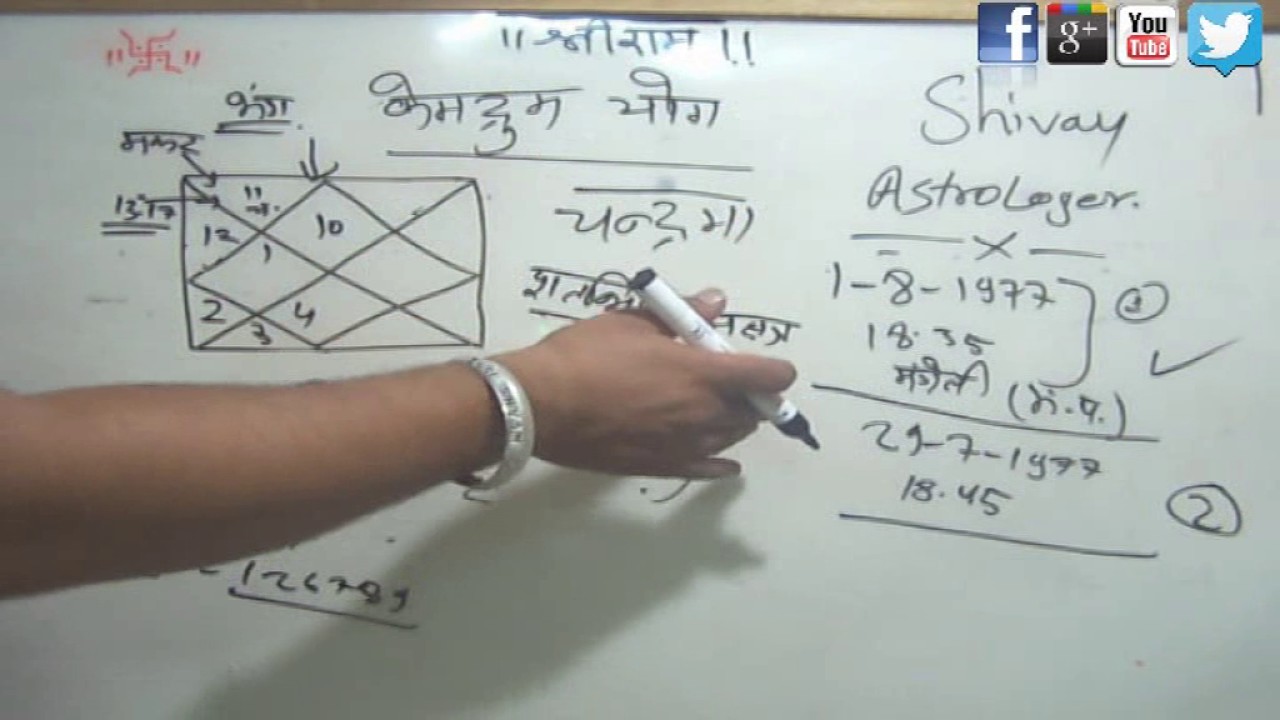 ॥ श्रीराम ॥
केमद्रुम योग
भंग
मकर
11
चं.
12
1
10
2
3
4
चन्द्रमा
नक्षत्र
126789
Shivay
Astrologer.
1-8-1977
18.35
(म.प्र.)
29-7-1977
18.45
2
f
g+
You
Tube